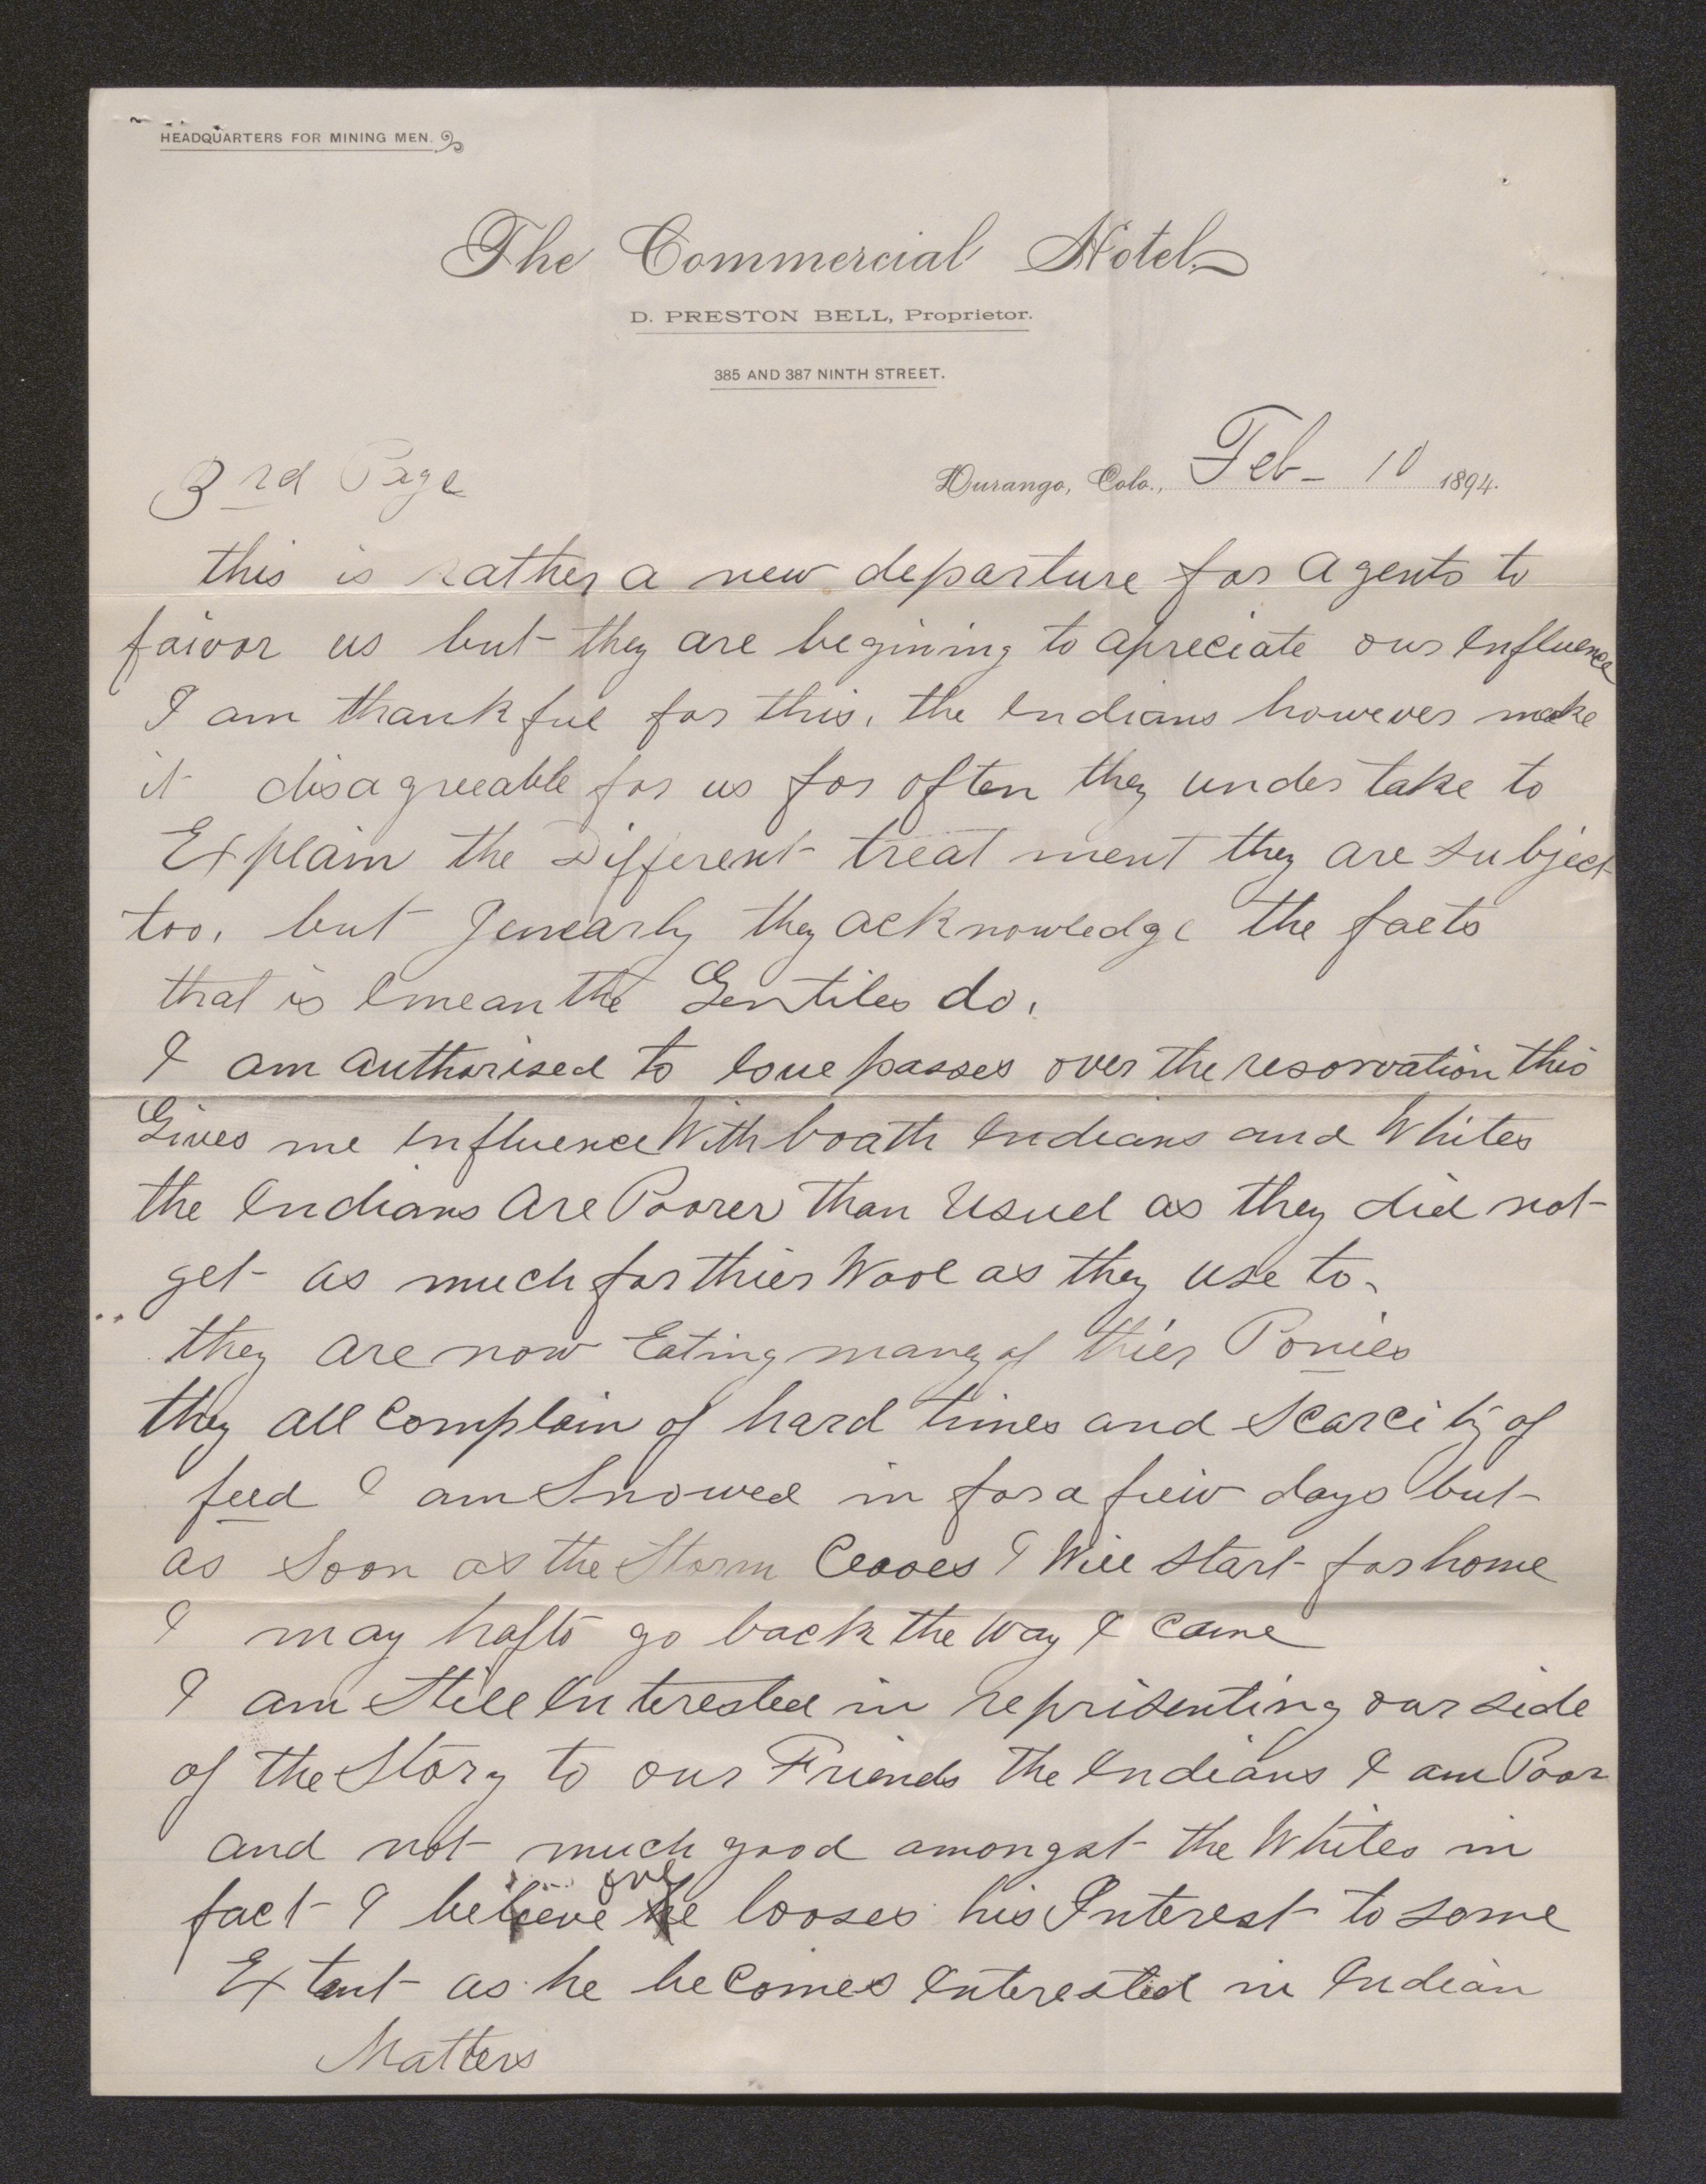 HEADQUARTERS FOR MINING MEN.
The Commercial Hotel.
D. PRESTON BELL, Proprietor.
385 AND 387 NINTH STREET.
3rd Page
Durango, Colo., Feb- 10 1894.
this is rather a new departure for agents to
faivor us but they are begining to apreciate our Influence
I am thankful for this. the Indians however make
it disagreeable for us for often they under take to
Explain the Different treat ment they are subject
too. but Jenearly they acknowledge the facts
that is I mean the Gentiles do.
I am authorised to Isue passes over the resorvation this
Gives me Influence With boath Indians and Whites
the Indians are Poorer than Usuel as they did not
get as much for thier Wool as they use to.
they are now Eating many of thier Ponies
they all complain of hard times and scarcity of
feed I am Snowed in for a fiew days but
as soon as the Storm Ceases I Will start for home
I may hafto go back the way I came
I am still Interested in reprisenting our side
of the Story to our Friends the Indians I am Poor
and not much good amongst the Whites in
fact I believe one looses his Interest to some
Extent as he becomes Interested in Indian
Matters